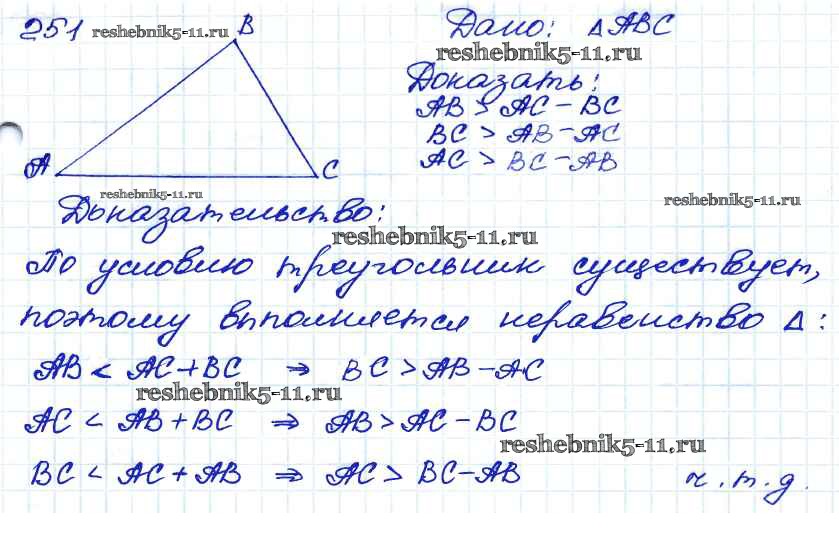 251 reshebnik5-11.ru B Дано: Δ ABC
reshebnik5-11.ru
Доказать:
AB > AC - BC
BC > AB - AC
AC > BC - AB
A C
reshebnik5-11.ru reshebnik5-11.ru
Доказательство:
reshebnik5-11.ru
По условию треугольник существует,
поэтому выполняется неравенство Δ:
AB < AC + BC ⇒ BC > AB - AC
reshebnik5-11.ru
AC < AB + BC ⇒ AB > AC - BC
reshebnik5-11.ru
BC < AC + AB ⇒ AC > BC - AB ч.т.д.